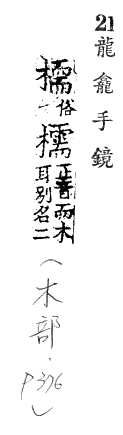 21 龍龕手鏡
俗檽正音而木耳別名二
(木部.P376)